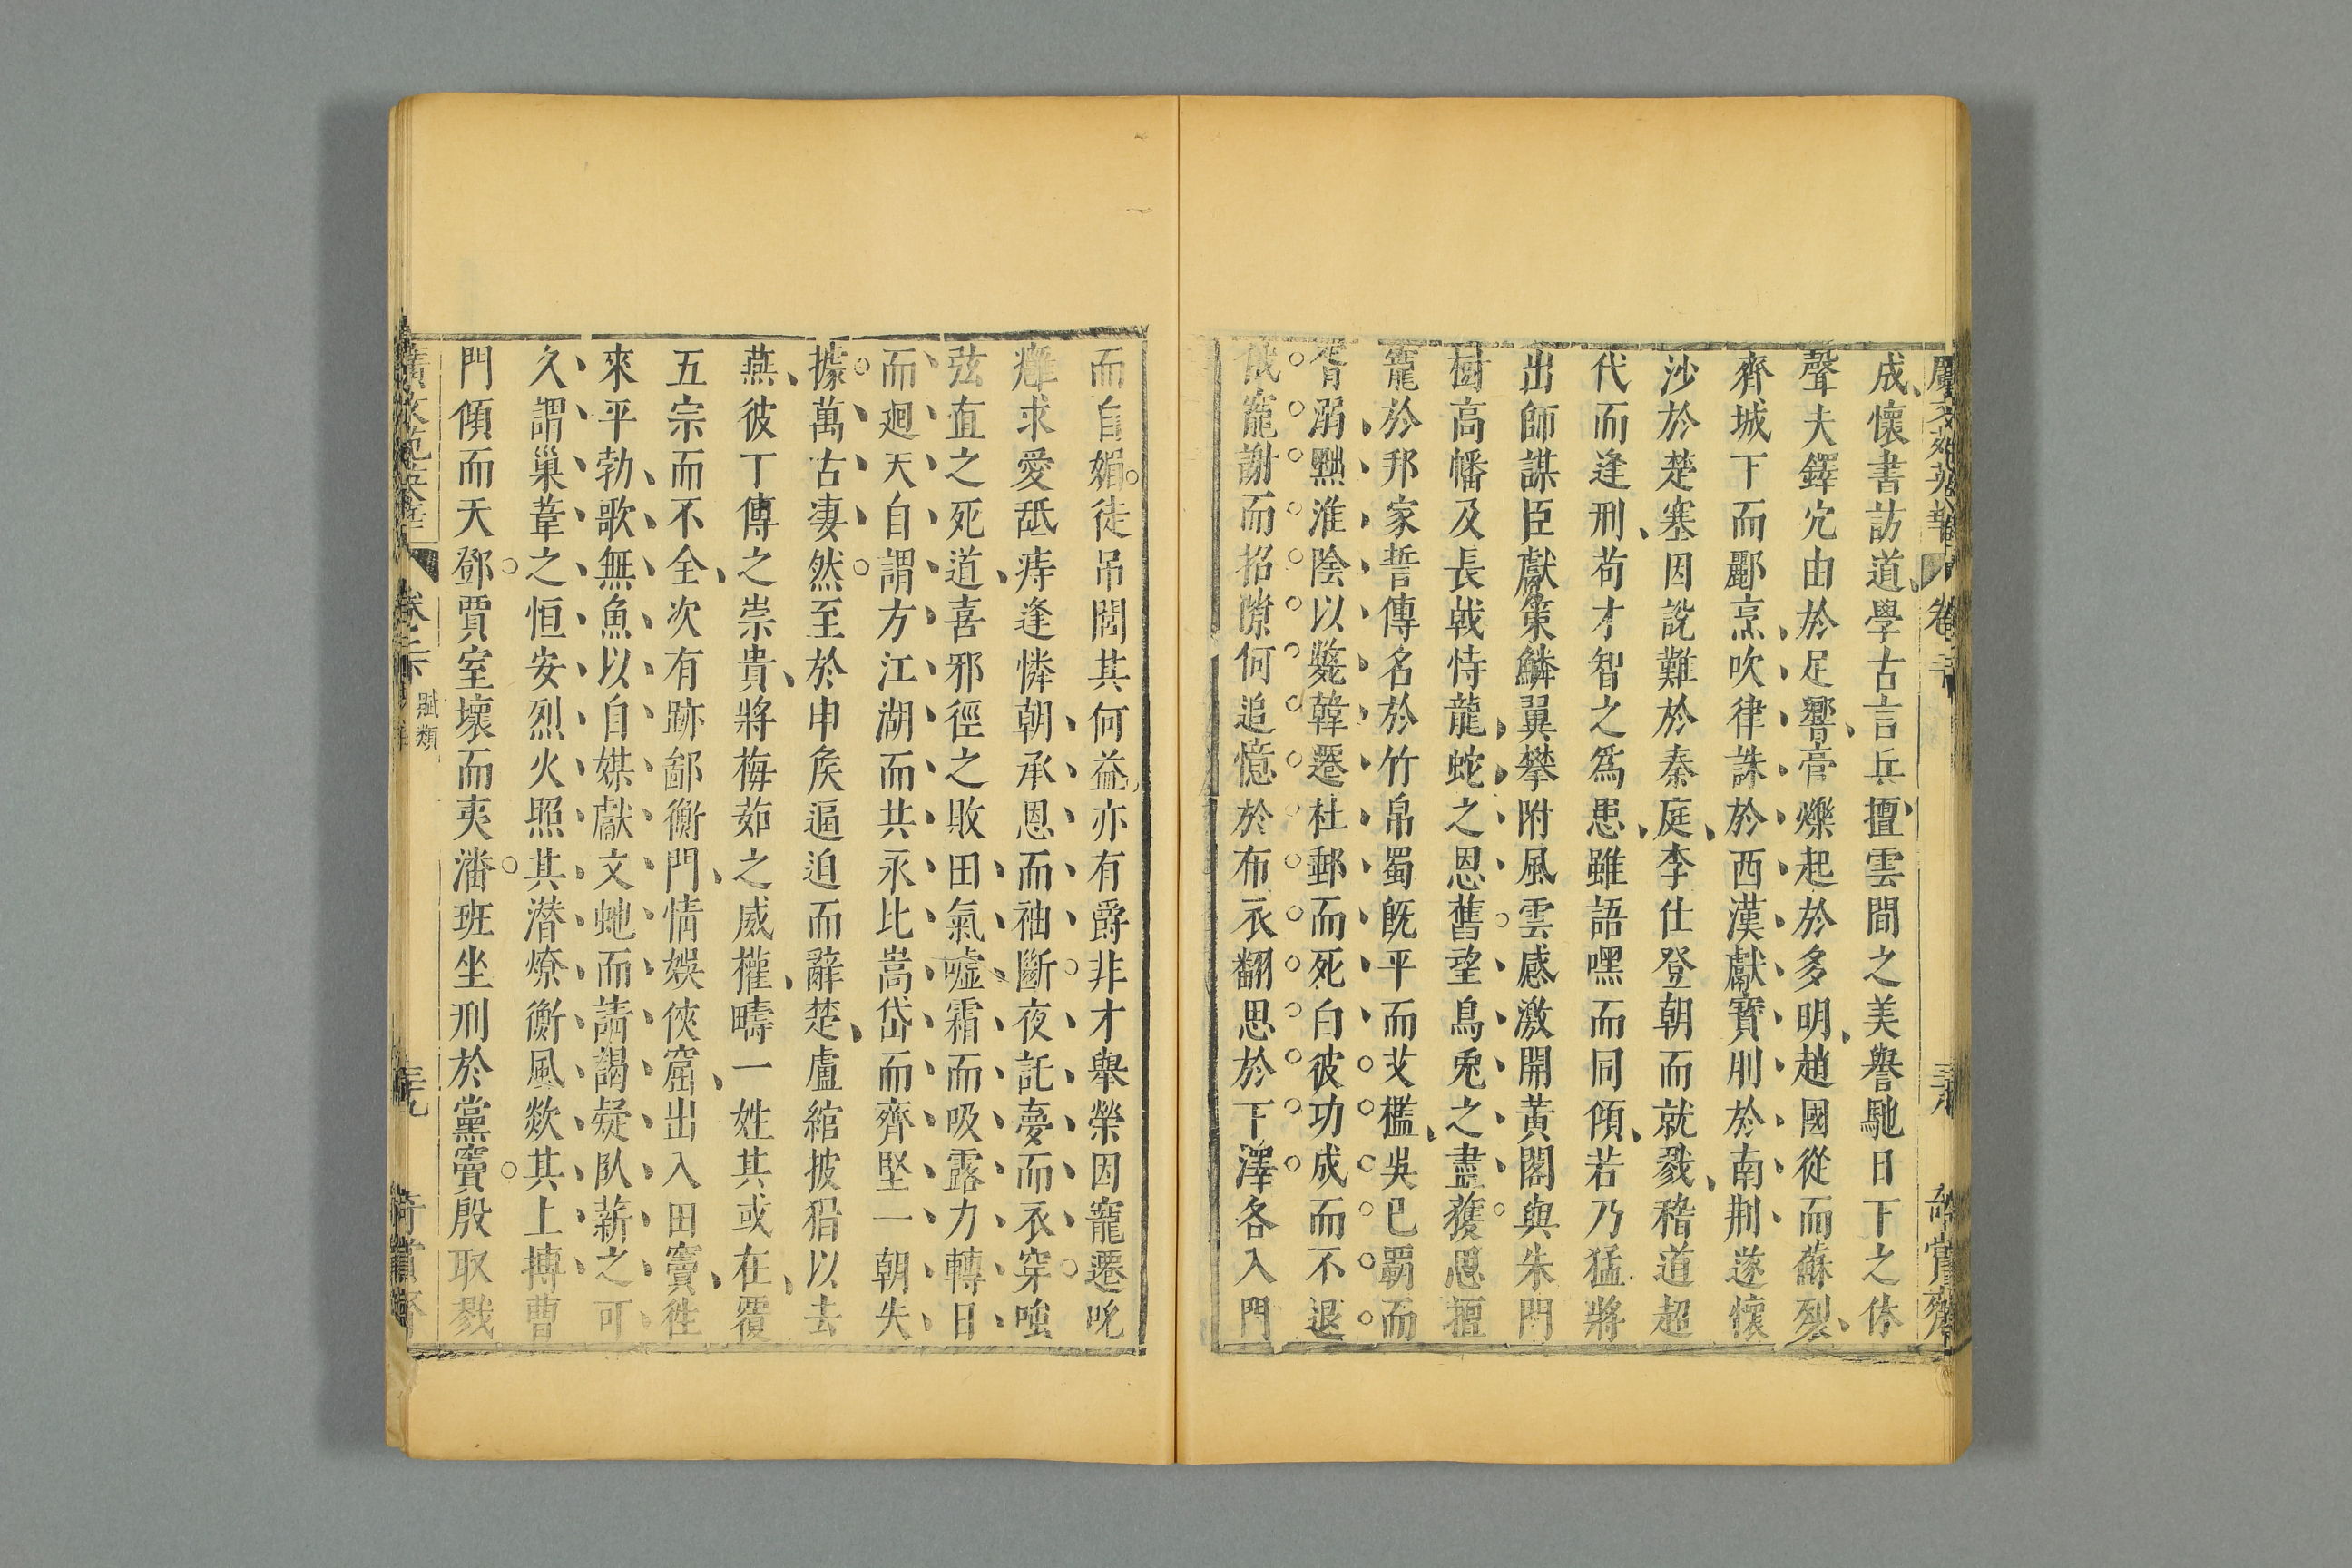 廣文苑英華 卷二十 奇賞齋
成懷書訪道學古言兵擅雲間之美譽馳日下之休
聲夫鐸宂由於足響膏爍起於多明趙國從而蘇裂
齊城下而酈烹吹律誅於西漢獻寳刖於南荆遂懷
沙於楚塞因說難於秦庭李仕登朝而就戮嵆道超
代而逢刑苟才智之爲患雖語嘿而同傾若乃猛將
出師謀臣獻策鱗翼攀附風雲感激開黃閣與朱門
樹高幡及長戟恃龍蛇之恩舊望鳥兎之盡獲慁擅
寵於邦家誓傳名於竹帛蜀旣平而艾檻吳已覇而
胥溺黥淮隂以斃韓遷杜郵而死白彼功成而不退
俄寵謝而招隙何追憶於布衣翻思於下澤各入門
而自媚徒吊閭其何益亦有爵非才舉榮因寵遷吮
癰求愛舐痔逢憐朝承恩而袖斷夜託夢而衣穿嗤
弦直之死道喜邪徑之敗田氣噓霜而吸露力轉日
而廻天自謂方江湖而共永比嵩岱而齊堅一朝失
據萬古凄然至於申侯逼迫而辭楚盧綰披猖以去
燕彼丁傅之崇貴將梅茹之威權疇一姓其或在覆
五宗而不全次有跡鄙衡門情娛俠窟出入田竇徃
來平勃歌無魚以自媒獻文虵而請謁疑臥薪之可
久謂巢葦之恒安烈火照其潜燎衝風欻其上搏曹
門傾而天鄧賈室壞而夷潘班坐刑於黨竇殷取戮
廣文苑英華 卷二十 賦類 三九 奇賞齋